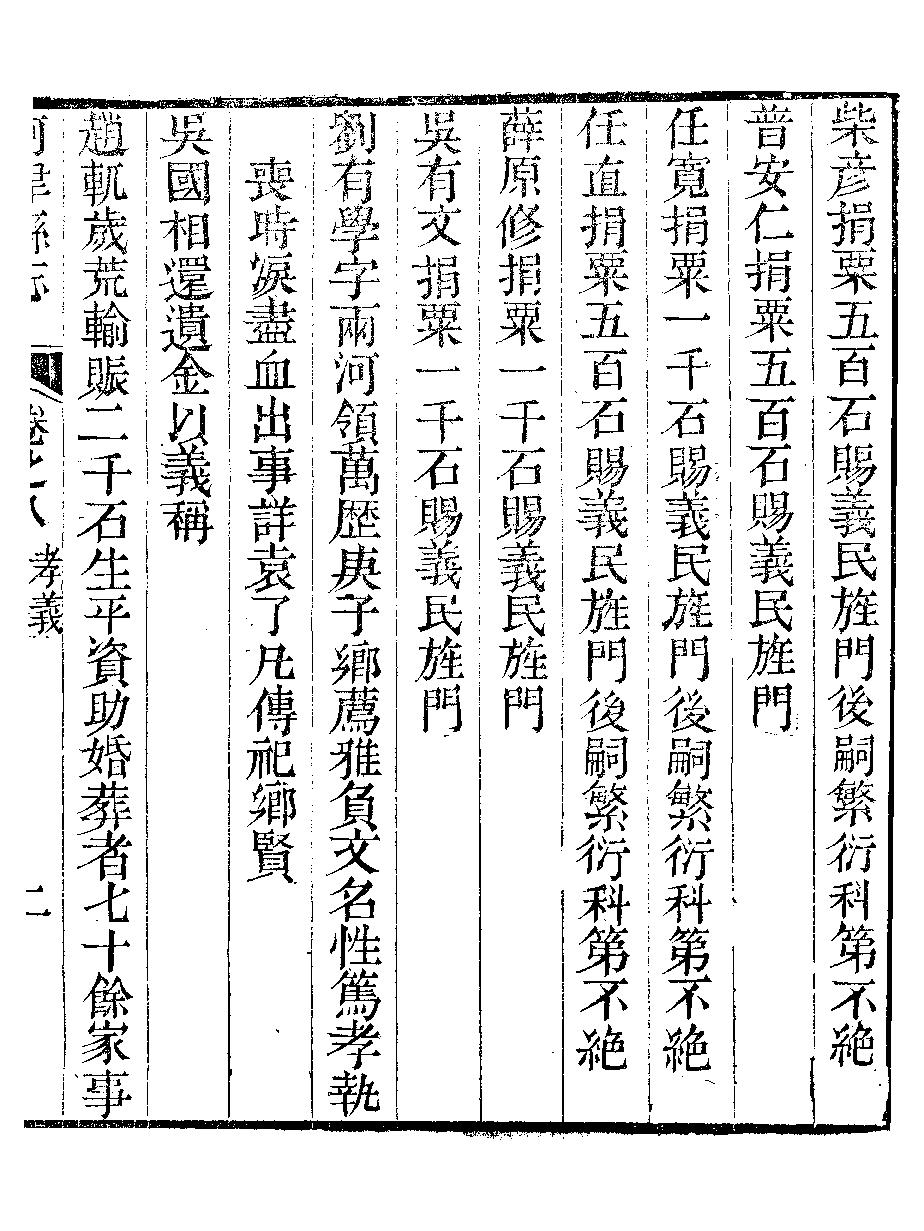 柴彥捐粟五百石賜義民旌門後嗣繁衍科第不絶
普安仁捐粟五百石賜義民旌門
任寛捐粟一千石賜義民旌門後嗣繁衍科第不絶
任直捐粟五百石賜義民旌門後嗣繁衍科第不絶
薛原修捐粟一千石賜義民旌門
吳有文捐粟一千石賜義民旌門
劉有學字兩河領萬歷庚子鄉薦雅負文名性篤孝執
喪時淚盡血出事詳袁了凡傳祀鄉賢
吳國相還遺金以義稱
趙軏歲荒輸賑二千石生平資助婚葬者七十餘家事
河津縣志 卷之八 孝義 二